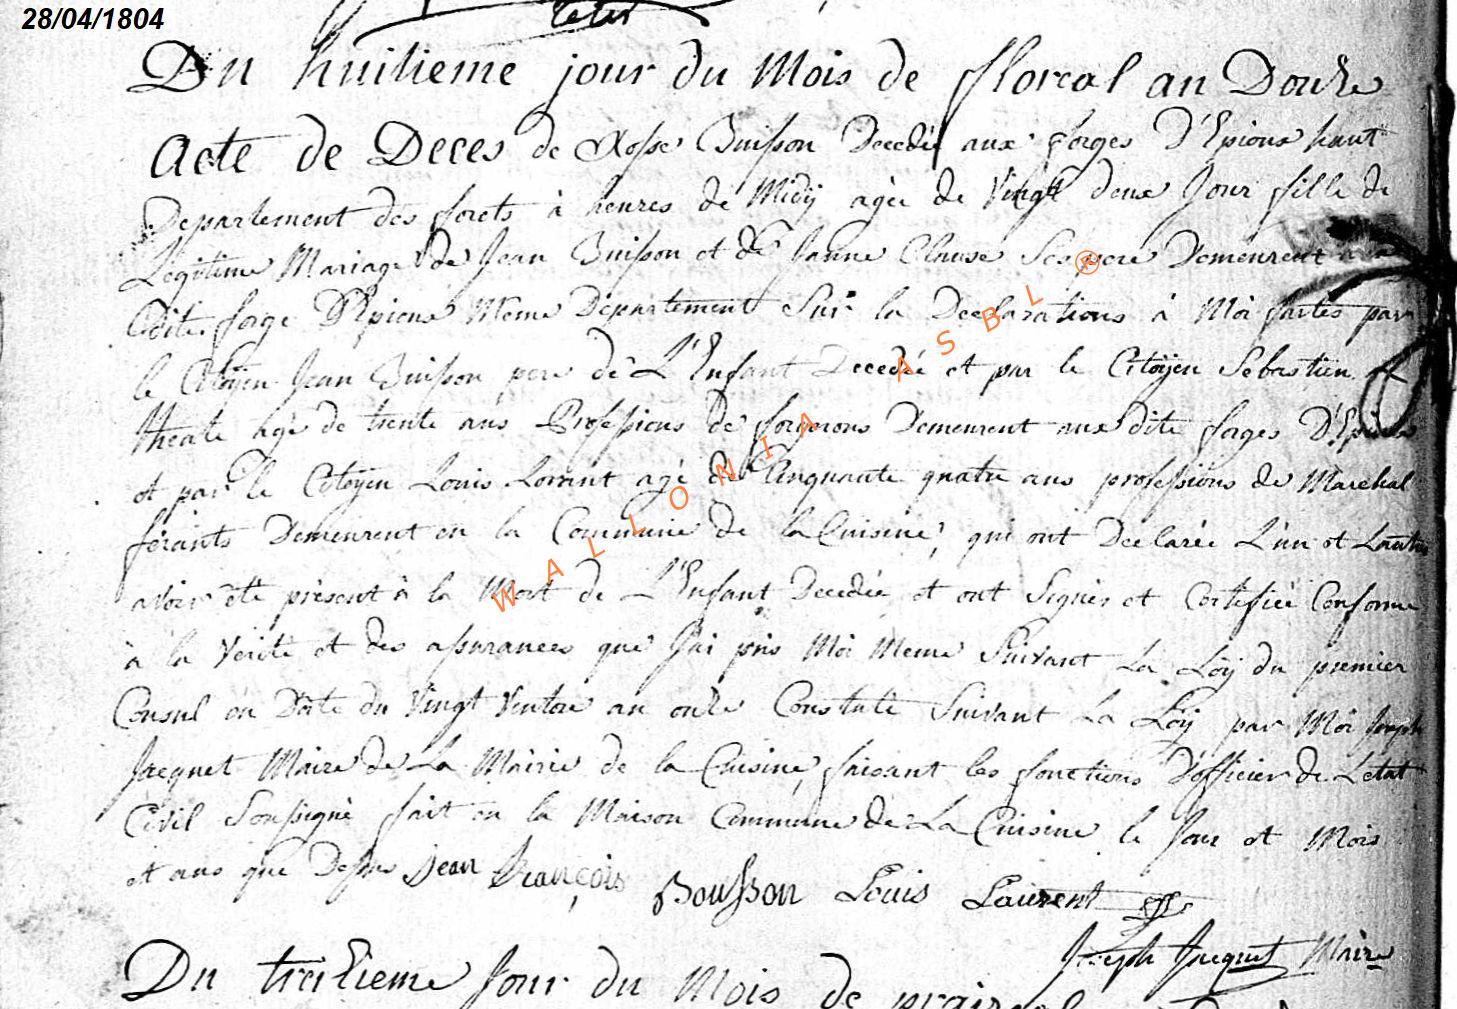 28/04/1804
Du huitieme jour du Mois de floreal an Douze
Acte de Deces de Rosse Buisson Decedée aux forges D'Epioux haut
Departement des forets à heures de Midÿ agée de Vingt deux Jour fille de
Legitime Mariage de Jean Buisson et de Janne Clause Ses pere Demeurent a la
dite forge D'Epioux Meme Departement Sur la Declarations à Moi faites par
le Citoÿen Jean Buisson pere de L'Enfant Decedée et par le Citoÿen Sebastien
theate agé de trente ans Professions de forgerons Demeurent aux dite forges D'Epioux
et par le Citoyen Louis Lorrint agé de Cinquante quatre ans professions de Marechal
ferants Demeurent en la Commune de la Cuisine, qui ont Declarée L'un et Lautre
avoir été présent à la Mort de L'Enfant Decedée et ont Signés et Certifiée Conforme
à la Verité et des assurances que J'ai pris Moi Meme Suivant La Loÿ du premier
Consul en Date du Vingt Ventose an onze Constaté Suivant La Loÿ par Moi Joseph
Jacquet Maire de La Mairie de la Cuisine, faisant les fonctions D'officier de L'etat
Civil Soussigné fait en la Maison Commune de La Cuisine le Jour et Mois
et ans que Dessus Jean François Bousson Louis Laurent
Joseph Jacquet Maire
Du treizieme Jour du Mois de prairial
WALLONIA ASBL ®